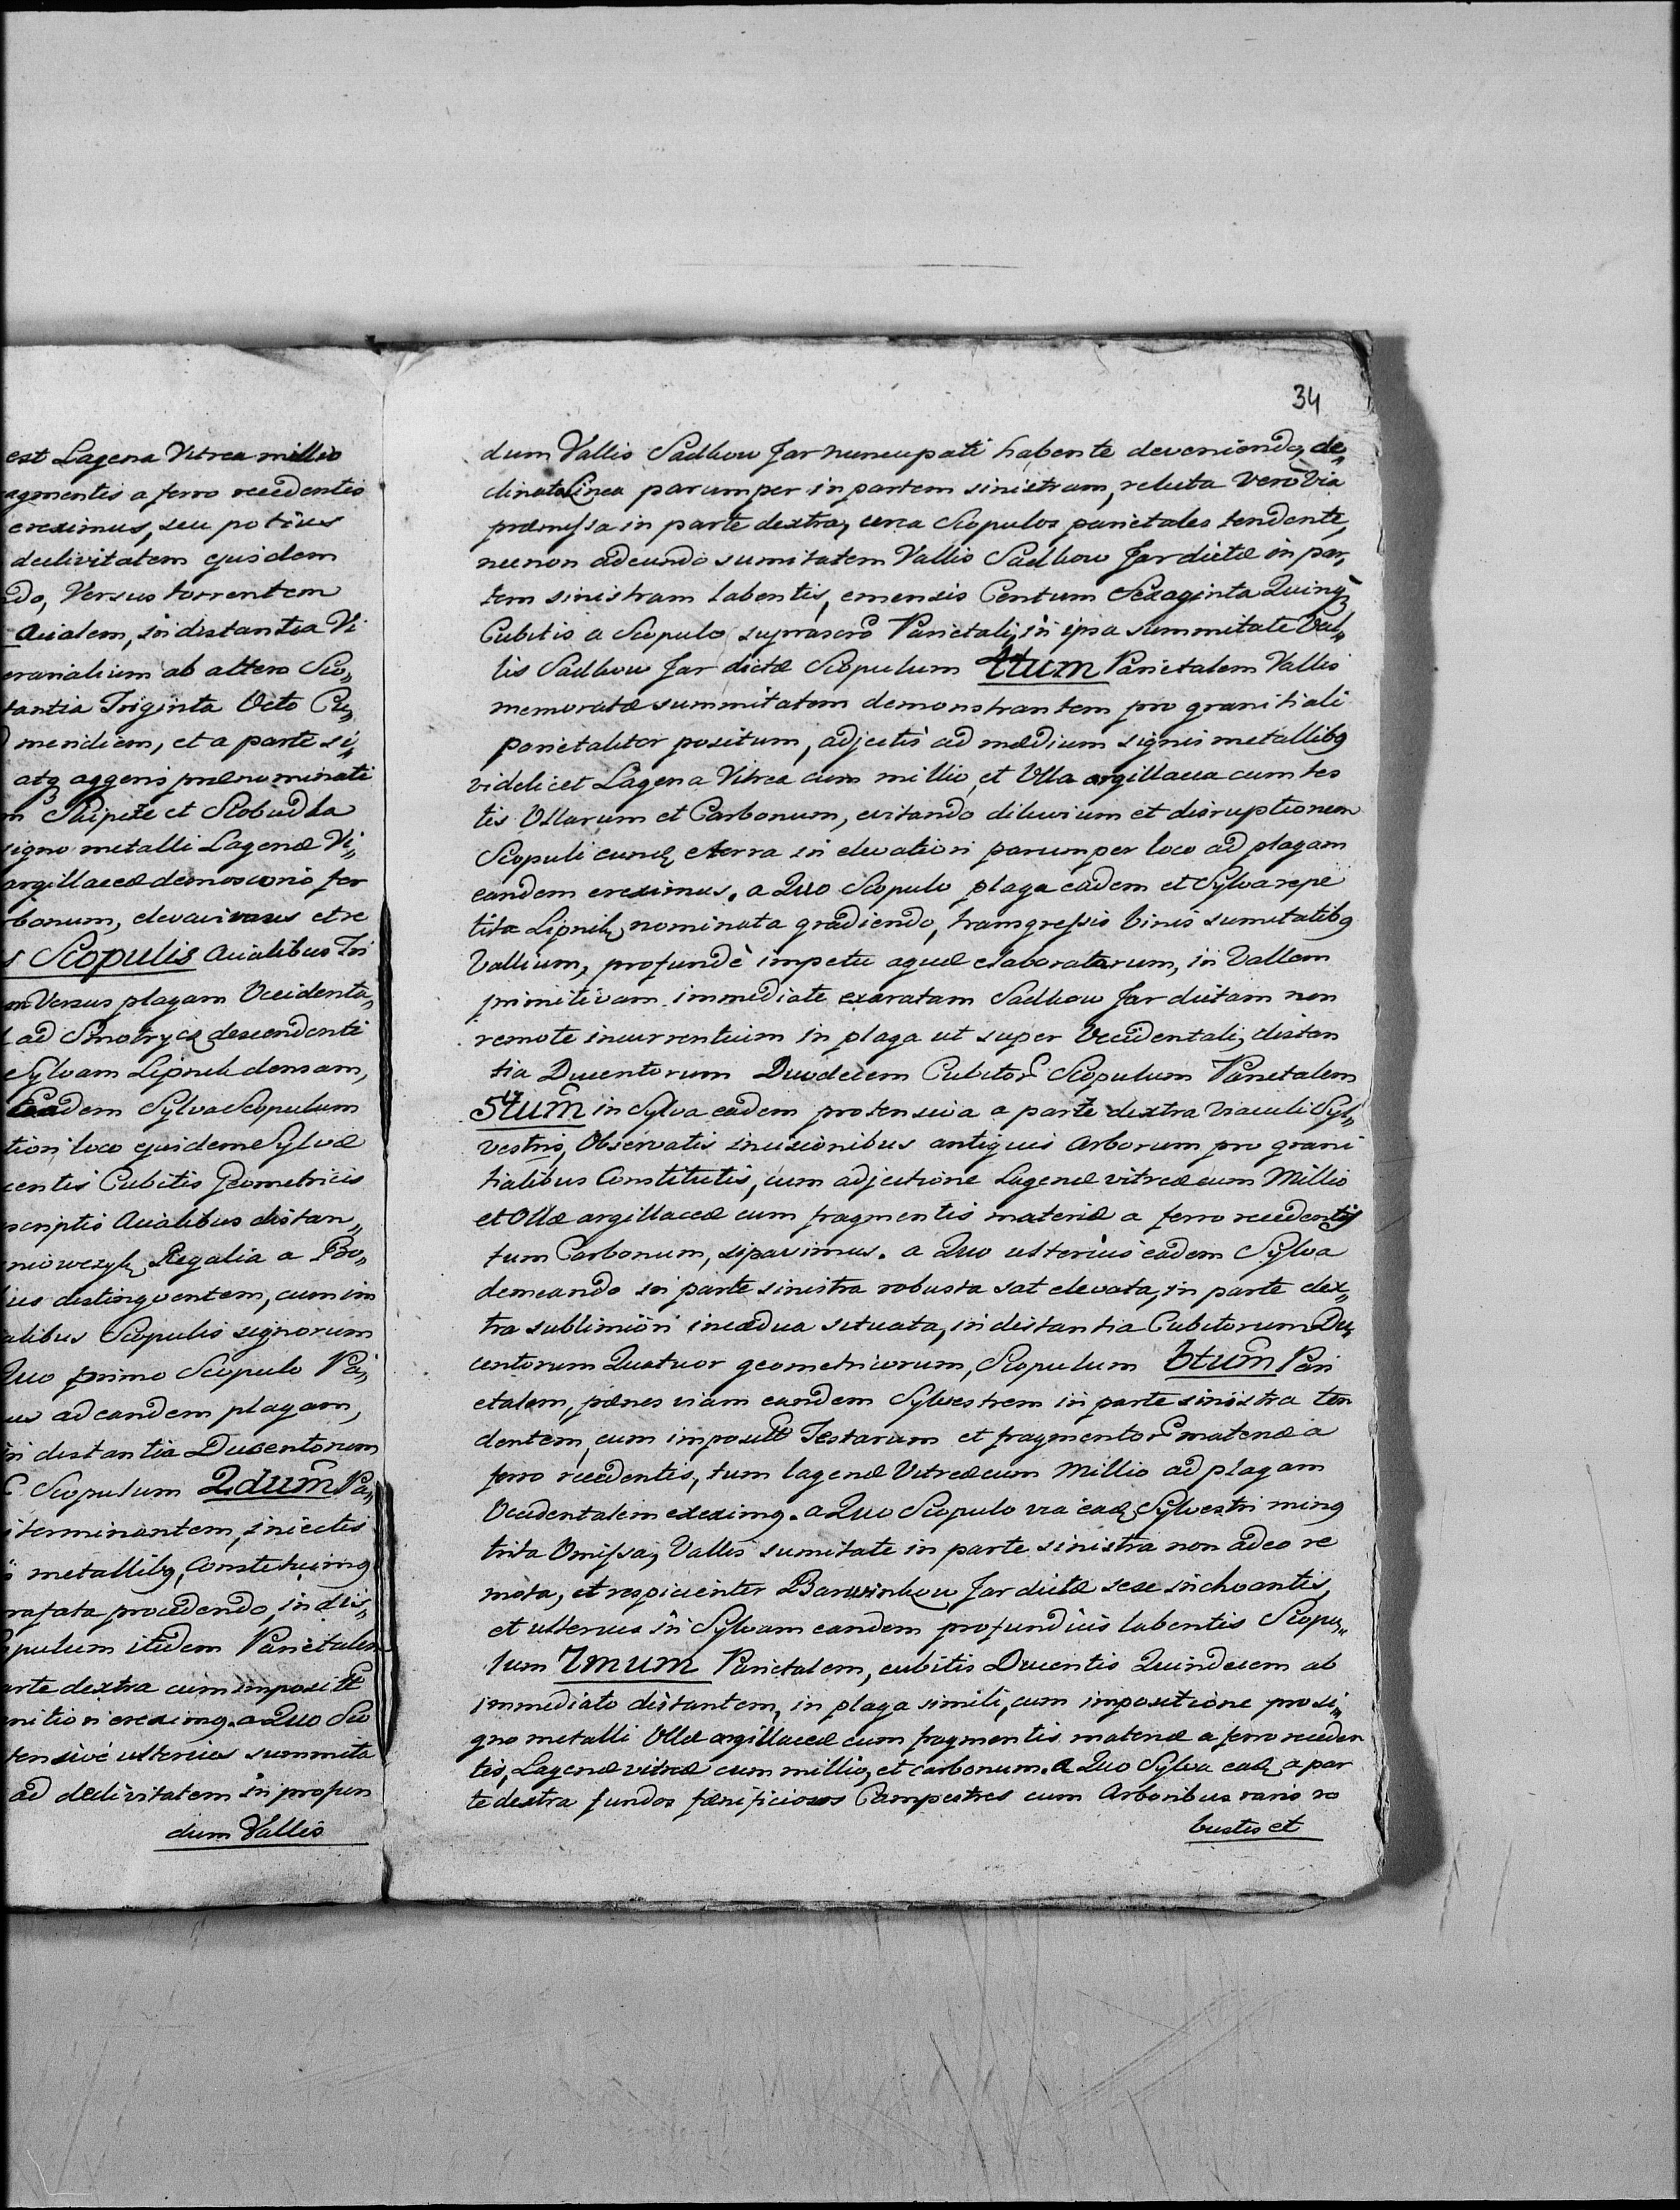 est Lagena Vitrea millio
agmentis a ferro recedentis
ereximus, seu potius
declivitatem ejusdem
do, Versus torrentem
Acialem, in distantia Vi
eranalium ab altero Sco„
tantia Triginta Octo Cu„
meridiem, et a parte si„
atq aggeris prænominati
m Stipite et Stobudka
signo metalli Lagenæ Vi„
argillaceæ demosionis fer
rbonum, elevavimus et re
s Scopulis Acialibus Tri
m Versus plagam Occidenta„
l ad Smotrycz descendenti
Sylvam Lipnik densam,
Eadem Sylva Scopulum
tiori loco ejusdem Sylvæ
centis Cubitis Geometricis
scriptis Acialibus distan„
niowczyk Regalia a Bo„
ius distinguentem, cum im
alibus Scopulis signorum
Quo primo Scopulo Pa„
us ad eandem plagam,
in distantia Ducentorum
Scopulum 2dum Pa„
iterminantem, iniectis
metallibq, Constituimq
rafata procedendo, in dis„
opulum itidem Parietalem
arte dextra cum imposit
nitiori ereximq. a Quo Sco
tensive ulterius summita
ad declivitatem in profun
dum Vallis
34
dum Vallis Sadkow Jar nuncupati habente deveniendo, de„
clinata Linea parumper in partem sinistram, relicta Verò Via
præmissa in parte dextra, circa Scopulos parietales tendente,
necnon adeundo sumitatem Vallis Sadkow Jar dictæ in par„
tem sinistram labentis, emensis Centum Sexaginta Quinq
Cubitis a Scopulo suprascro Parietali, in ipsa summitate Val„
lis Sadkow Jar dictæ Scopulum 4tum Parietalem Vallis
memoratæ summitatem demonstrantem pro granitiali
parietaliter positum, adjectis ad mædium signis metallibq
videlicet Lagena Vitrea cum millio, et Olla argillacea cum tes
tis Ollarum et Carbonum, evitando diluvium et disruptionem
Scopuli eundem eterra in elevatiori parumper loco ad plagam
eandem ereximus. a Quo Scopulo plaga eadem et Sylva repe
tita Lipnik nominata gradiendo, transgressis binis sumitatibq
Vallium, profundè impetu aquæ elaboratarum, in Vallem
primitivam immediate exaratam Sadkow Jar dictam non
remote incurrentium in plaga ut super Occidentali, distan
tia Ducentorum Duodecem Cubitor Scopulum Parietalem
5tum in Sylva eadem protensiva a parte dextra Viaculi Syl„
vestris, Observatis incisionibus antiquis Arborum pro grani
tialibus Constitutis, cum adjectione Lagenæ vitreæ cum Millio
et Ollæ argillaceæ cum fragmentis materiæ a ferro recedentis
tum Carbonum, sipavimus. a Quo ulterius eadem Sylva
demeando in parte sinistra robusta sat elevata, in parte dex„
tra sublimiori incædua situata, in distantia Cubitorum Du„
centorum Quatuor geometricorum, Scopulum 6tum Pari
etalem, pænes viam eandem Sylvestrem in parte sinistra ten
dentem, cum imposit Testarum et fragmentor materiæ a
ferro recedentis, tum lagenæ Vitreæ cum Millio ad plagam
Occidentalem ereximq. a Quo Scopulo via ead Sylvestri minq
trita Omissa, Vallis sumitate in parte sinistra non adeo re
mota, et respicienter Barwinkow Jar dictæ sese inchoantis,
et ulterius in Sylvam eandem profundius labentis Scopu„
lum 7mum Parietalem, cubitis Ducentis Quindecem ab
immediato distantem, in plaga simili, cum impositione pro si„
gno metalli Ollæ argillaceæ cum fragmentis materiæ a ferro receden
tis, Lagenæ vitreæ cum millio, et carbonum. a Quo Sylva ead a par
te dextra fundos fænificiosos Campestres cum Arboribus raris ro
bustis et